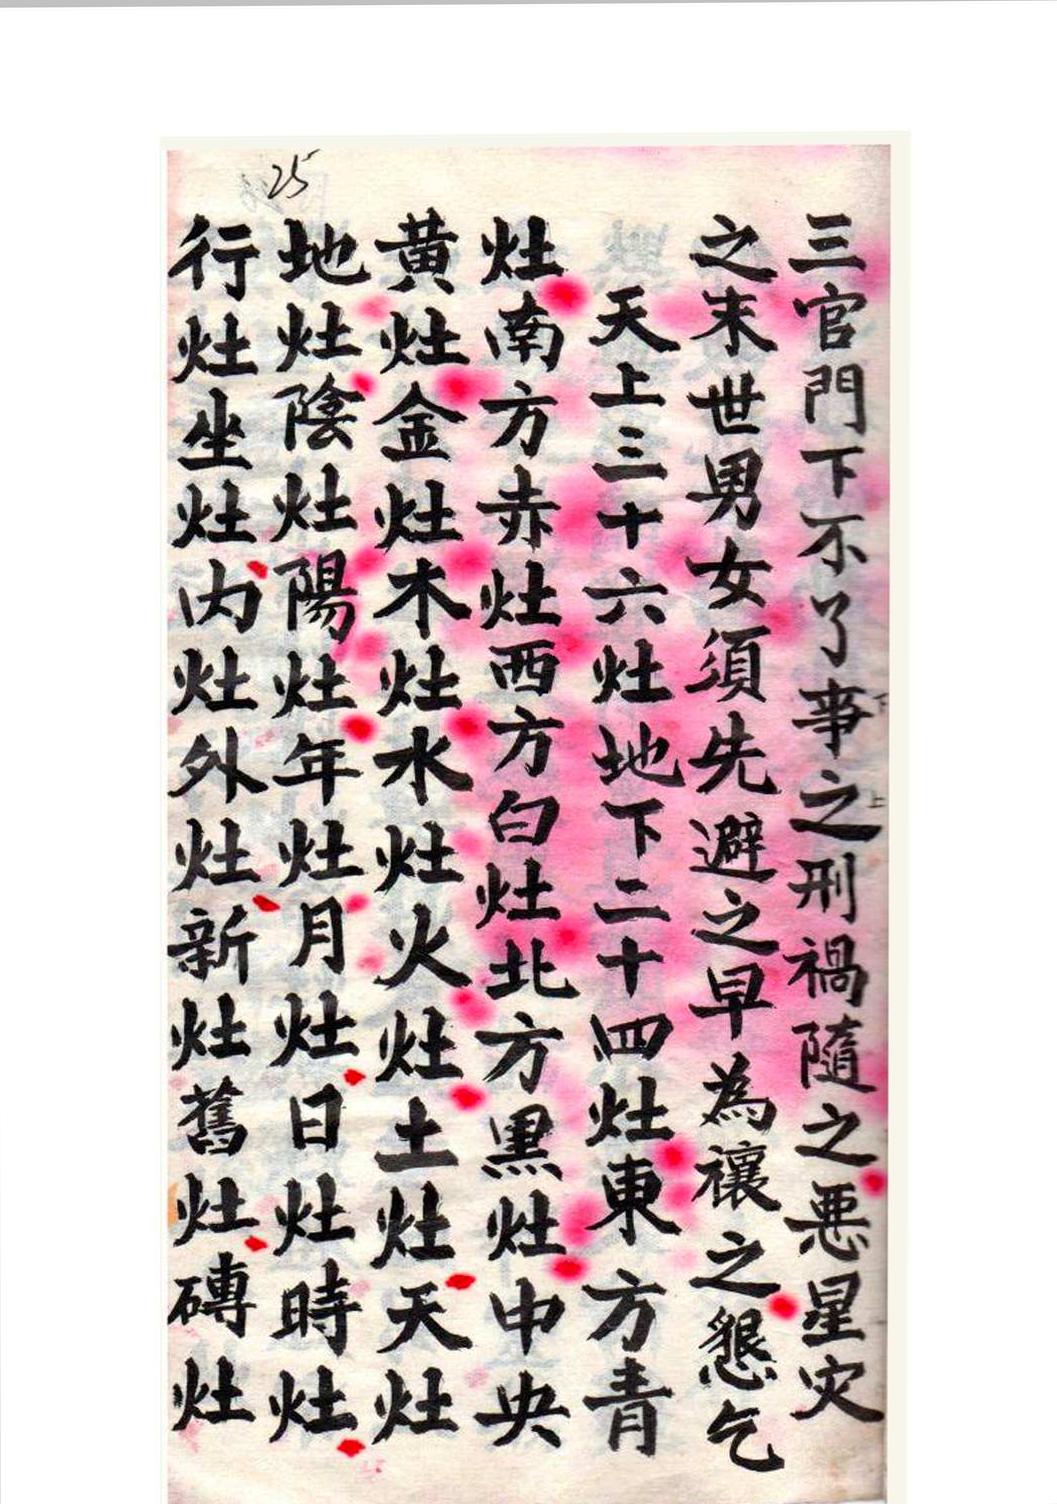 三官門下不了事之刑禍隨之惡星灾
之末世男女須先避之早為禳之懇乞
天上三十六灶地下二十四灶東方青
灶南方赤灶西方白灶北方黑灶中央
黃灶金灶木灶水灶火灶土灶天灶
地灶陰灶陽灶年灶月灶日灶時灶
行灶坐灶內灶外灶新灶舊灶磚灶
25
下
上